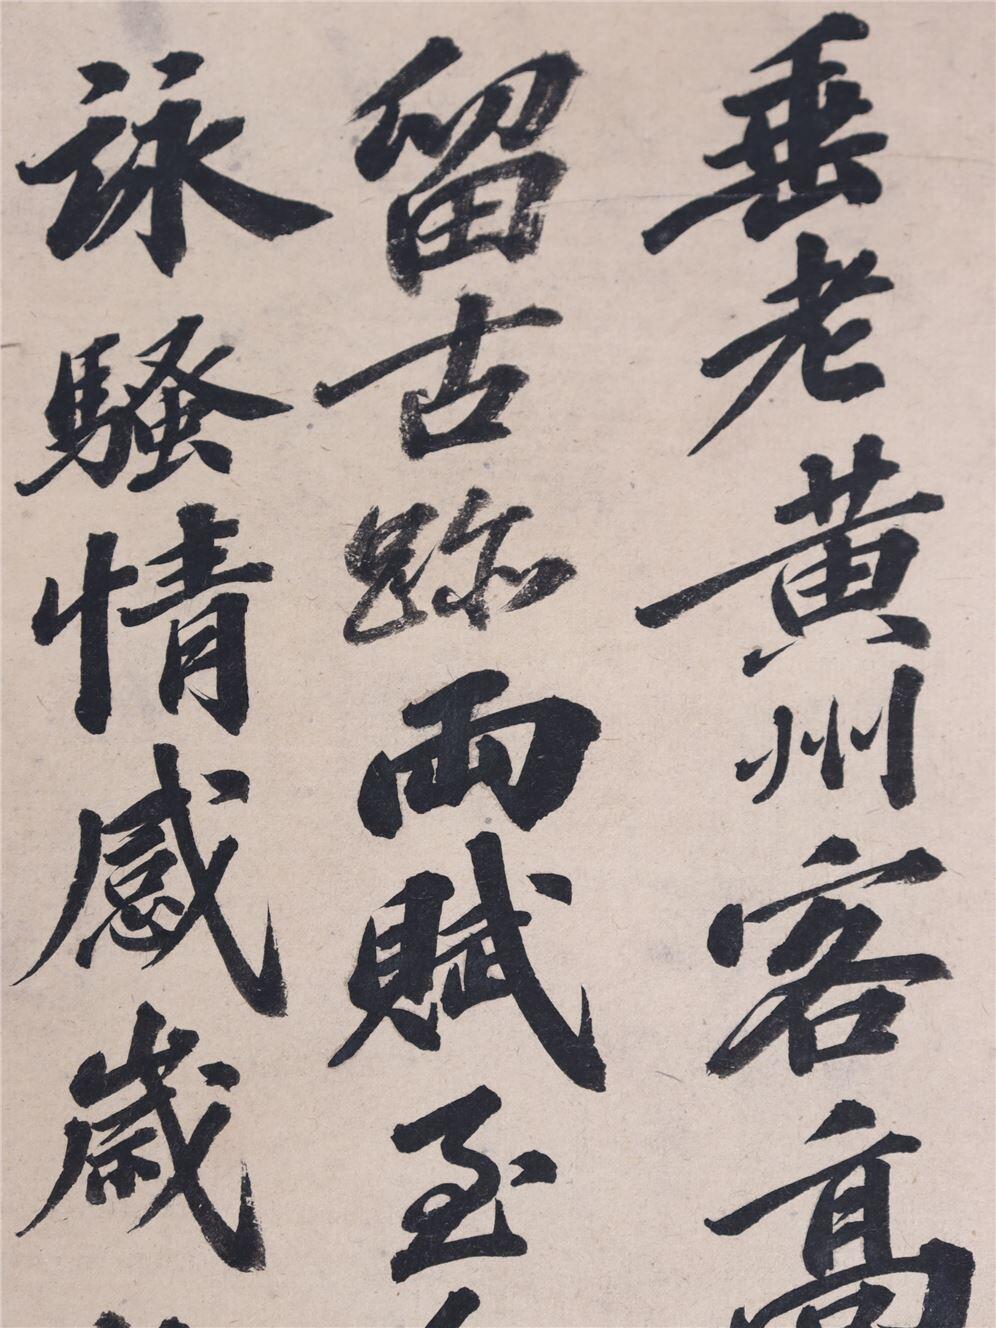 垂老黄州客高
留古跡兩賦至
詠騷情感歲